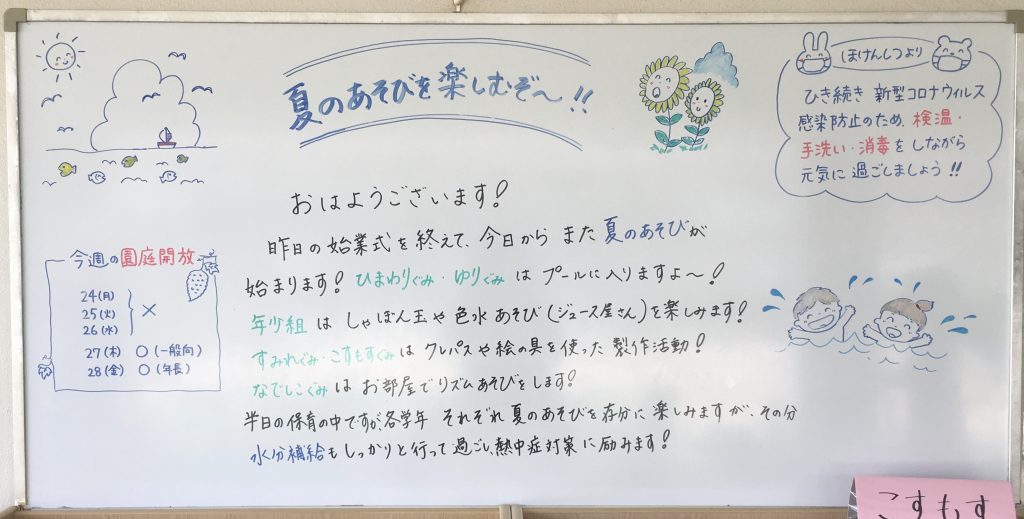 夏のあそびを楽しむぞ〜!!
ほけんしつより
ひき続き 新型コロナウィルス
感染防止のため、検温・
手洗い・消毒をしながら
元気に過ごしましょう!!
おはようございます!
昨日の始業式を終えて、今日から また 夏のあそびが
始まります! ひまわりぐみ・ゆりぐみ は プールに入りますよ〜!
年少組 は しゃぼん玉や 色水 あそび (ジュース屋さん) を 楽しみます!
すみれぐみ・こすもすぐみ は クレパスや絵の具を使った 製作活動!
なでしこぐみ は お部屋で リズムあそびをします!
半日の保育の中ですが、各学年 それぞれ 夏のあそびを存分に 楽しみますが、その分
水分補給も しっかりと行って 過ごし、熱中症対策 に励みます!
今週の園庭開放
24(月)
25(火) ×
26(水)
27(木) ○(一般向)
28(金) ○(年長)
こすもす